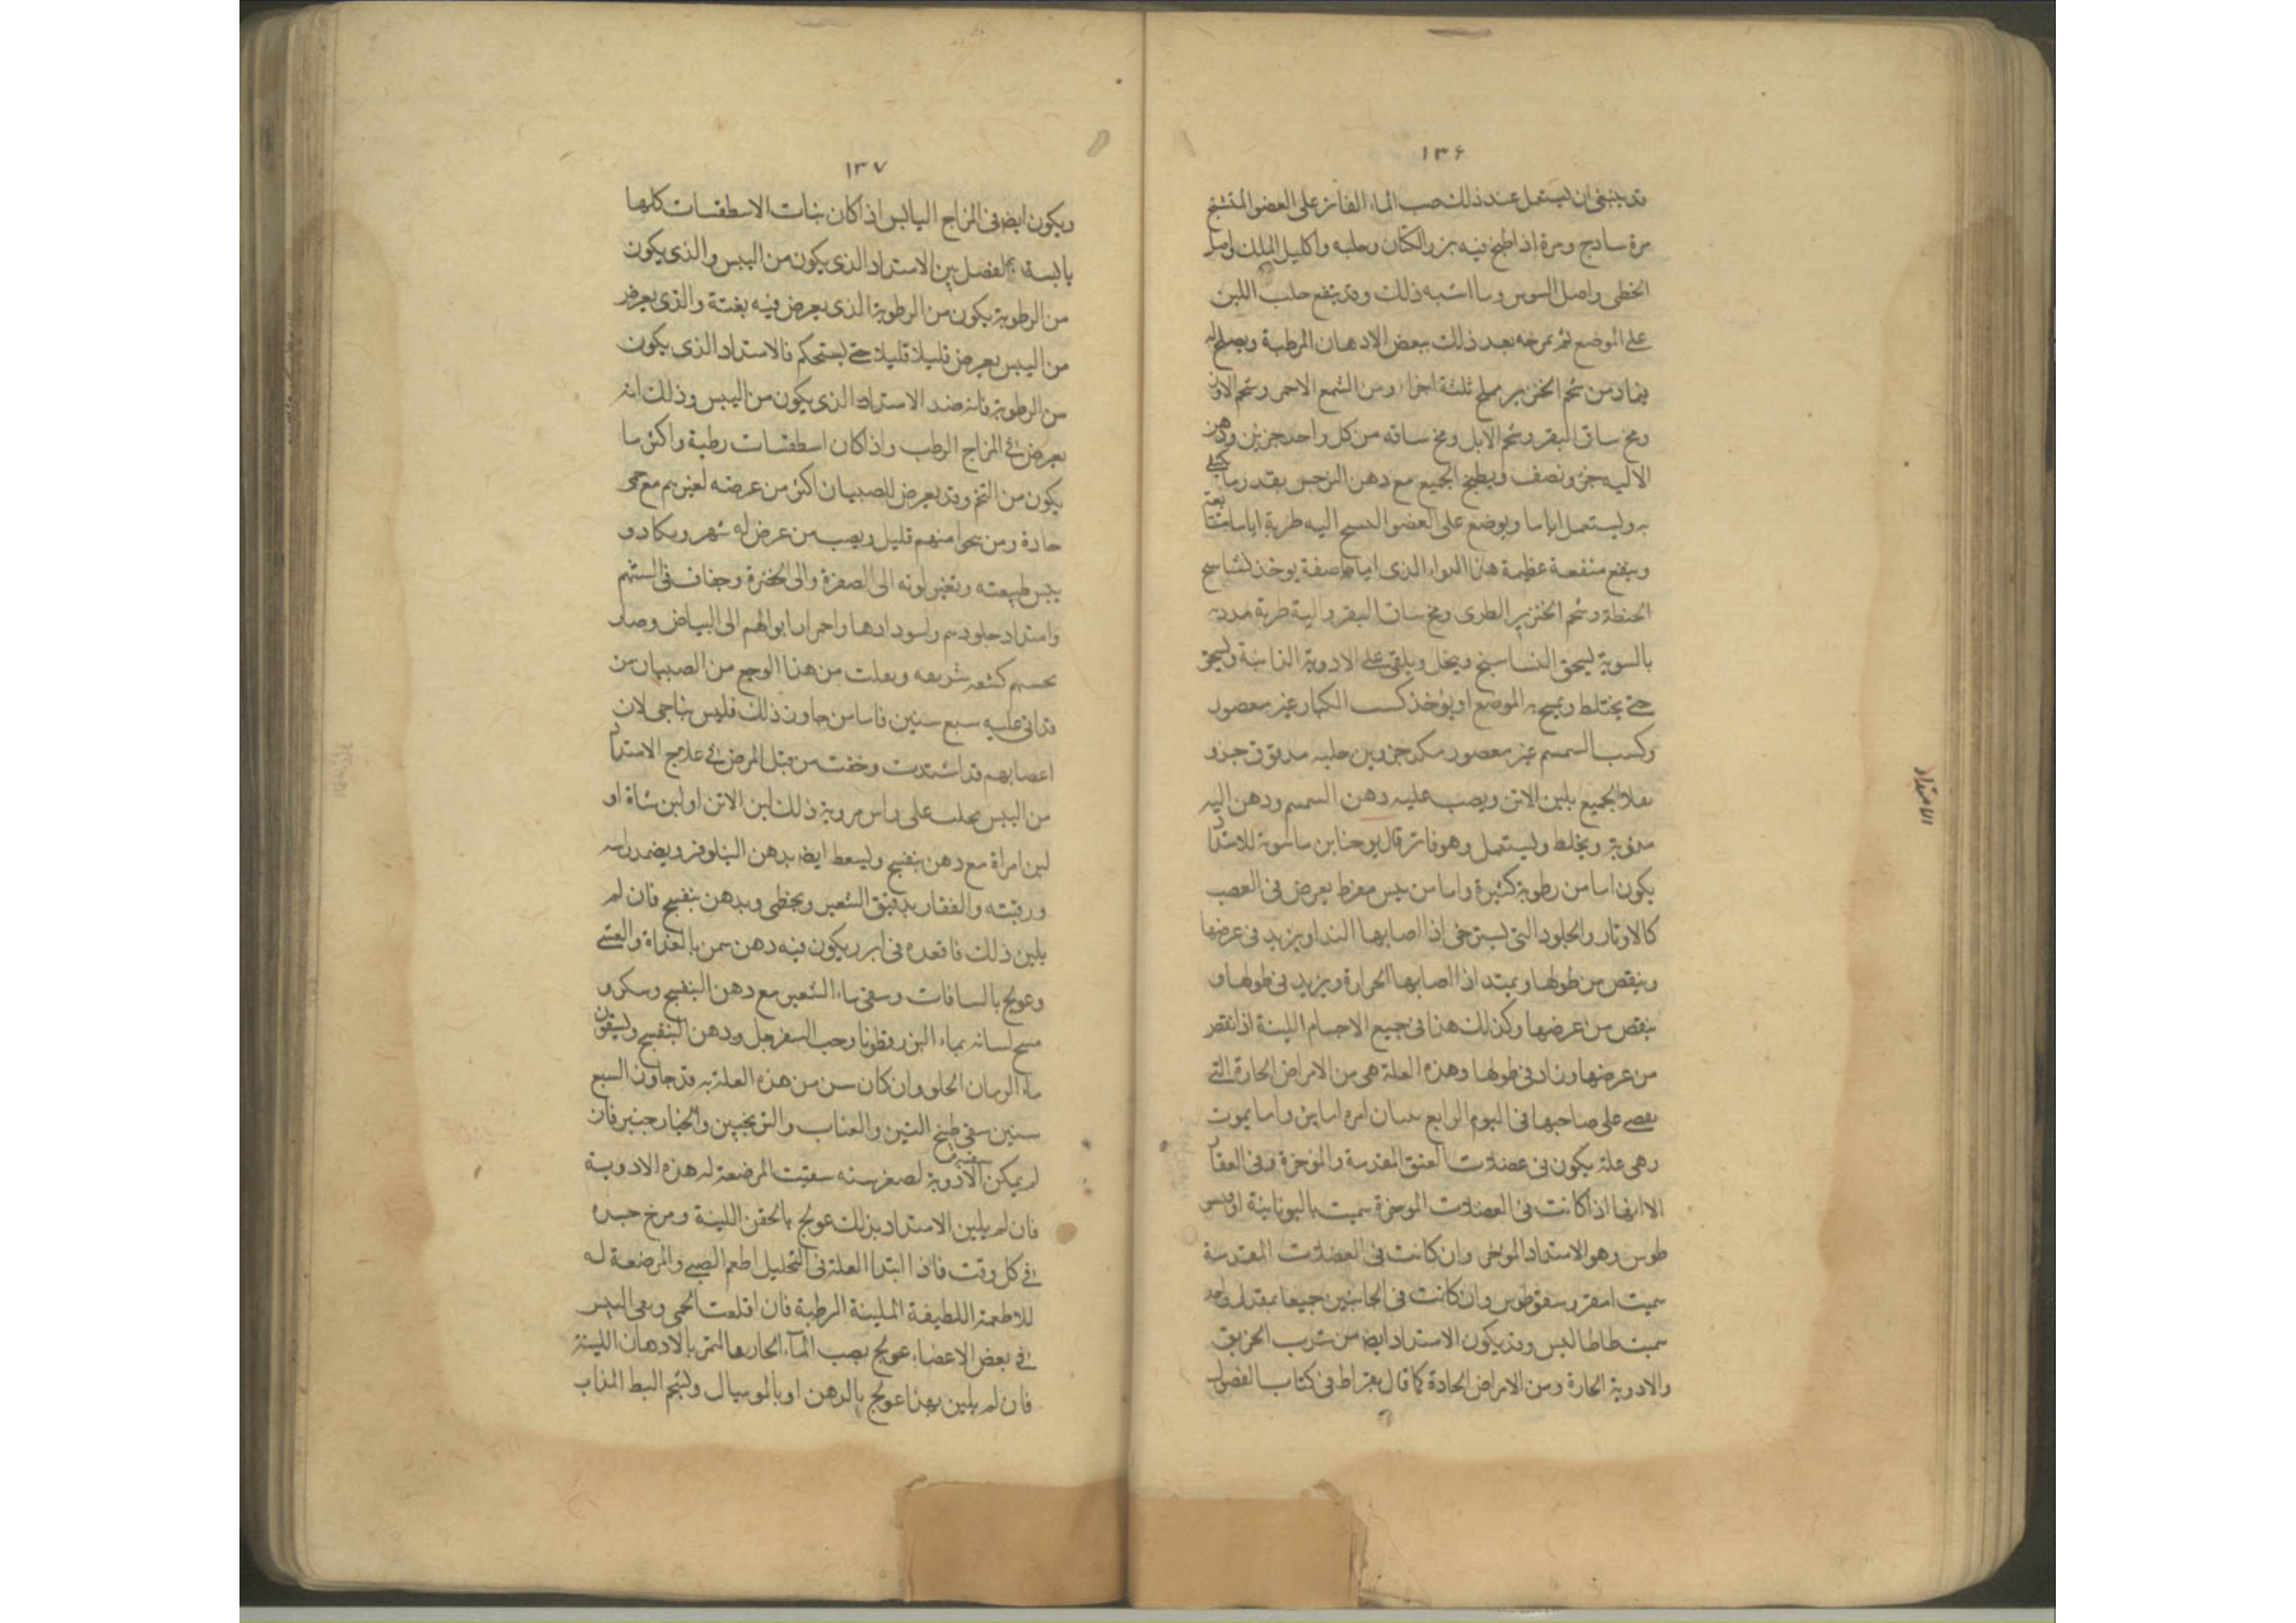 ١٣۶
قد ينبغى ان يستعمل عند ذلك صب الماء الفاتر على العضو المتشنج
مرة ساذج ومرة اذا طبخ فيه بزر الكتان وحلبه واكليل الملك واصل
الخطى واصل السوس وما اشبه ذلك وقد ينفع حلب اللبن
على الموضع ثم تمرخه بعد ذلك ببعض الادهان المرطبة ويصلح له
ضماد من شحم الخنزير مملح ثلثة اجزا ومن الشمع الاحمر وشحم الاوز
ومخ ساق البقر وشحم الابل ومخ ساقه من كل واحد جزئين ودهن
الاليه جزو نصف ويطبخ الجميع مع دهن النرجس بقدر ما يكتفى
به ويستعمل اياما ويوضع على العضو اليه طرية اياما متتابعة
وينفع منفعة عظيمة هذا الدواء الذى صفة يوخذ نشاسج
الحنطة وشحم الخنزير الطرى ومخ ساق البقر والية طرية
بالسوية يسحق النشاسج وينخل ويلقى على الادوية الذائبة ويسحق
حتى يختلط ويمسح به الموضع او يوخذ كسب الكتان غير معصور
وكسب السمسم غير معصور جزوين حلبه مدقوق جزو
الجميع بلبن الاتن ويصب عليه دهن السمسم ودهن اليه
مذوبة ويخلط ويستعمل وهو فاتر قال يوحنا بن ماسويه الامتداد
يكون اما من رطوبة كثيرة واما من يبس مفرط يعرض فى العصب
كالاوتار والجلود التى تسترخى اذا اصابها الندا ويزيد فى عرضها
وينقص من طولها ويمتد اذا اصابها الحرارة ويزيد فى طولها و
ينقص من عرضها وكذلك هذا فى جميع الاجسام اللينة اذا نقص
من عرضها وزاد فى طولها وهذه العلة هى من الامراض الحارة التى
على صاحبها فى اليوم الرابع واما يموت
وهى علة يكون فى عضلات العنق المقدمة والموخرة وفى الفقار
الا انها اذا كانت فى العضلات الموخرة سميت باليونانية
طوس وهو الامتداد الموخر وان كانت فى العضلات المقدمة
سميت وان كانت فى الجانبين جميعا بمقدار واحد
سميت وقد يكون الامتداد ايضا من شرب الخربق
والادوية الحارة ومن الامراض الحادة كما قال بقراط فى كتاب الفصول
الامتداد
١٣٧
ويكون ايضا فى المزاج اليابس اذا كان الاسطقسات كلها
يابسة الفصل بين الامتداد الذى يكون من اليبس والذى يكون
من الرطوبة يكون من الرطوبة الذى يعرض فيه بغتة والذى يعرض
من اليبس يعرض قليلا قليلا حتى يستحكم فالامتداد الذى يكون
من الرطوبة فانه ضد الامتداد الذى يكون من اليبس وذلك انه
يعرض فى المزاج الرطب واذا كان اسطقسات رطبة واكثر ما
يكون من التخم وقد يعرض للصبيان اكثر من عرضه لغيرهم مع حمى
حادة ومن نجوا منهم قليل ويصب من عرض له سهر وبكاء و
يبس طبيعته وتغير لونه الى الصفرة والى الخضرة وجفاف فى السنتهم
وامتداد جلودهم واسودادها واحمرار ابوالهم الى البياض وصار
من هذا الوجع من الصبيان من
قد اتى عليه سبع سنين فاما من جاوز ذلك فليس بناجى لان
اعصابهم قد اشتدت وخفت من قبل المرض فى علاج الامتداد
من اليبس يحلب على راس من به ذلك لبن الاتن او لبن شاة او
لبن امراة مع دهن بنفسج ويسعط ايضا بدهن النيلوفر ويضمد راسه
ورقبته والفقار بدقيق الشعير وبخطمى وبدهن بنفسج فان لم
يلين ذلك فاقعده فى ابزن يكون فيه دهن سمن بالغداة والعشى
وعولج وسقى ماء الشعير مع دهن البنفسج وسكر و
مسح لسانه بماء البزرقطونا وحب السفرجل ودهن البنفسج ويسقون
ماء الرمان الحلو وان كان سن من هذه العلة به قد جاوز السبع
سنين سقى طبيخ التين والعناب والترنجبين والخيار جنبر فان
لم يمكن سقيه الادوية لصغر سنه سقيت المرضعة له هذه الادوية
فان لم يلين الامتداد بذلك عولج بالحقن اللينة ومرخ جسده
فى كل وقت فاذا ابتدا العلة فى التحليل اطعم الصبى والمرضعة له
للاطعمة اللطيفة الملينة الرطبة فان اقلعت الحمى وبقى اليبس
فى بعض الاعضاء عولج بصب الماء الحار بالادهان اللينة
فان لم يلين بهذا عولج بالدهن او بالموميال وشحم البط المذاب